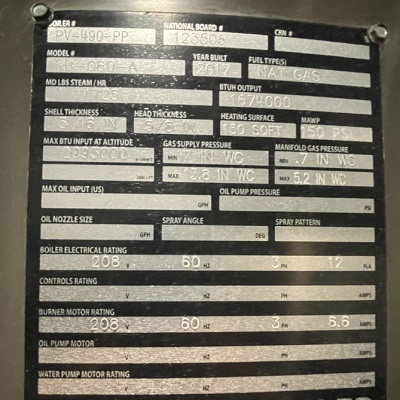 BOILER # NATIONAL BOARD # CRN #
PV-490-PP 123506
MODEL # YEAR BUILT FUEL TYPE(S)
2017 NAT GAS
MD LBS STEAM / HR BTUH OUTPUT
1674000
SHELL THICKNESS HEAD THICKNESS HEATING SURFACE MAWP
5/16 IN 150 SQFT 150 PSI
MAX BTU INPUT AT ALTITUDE GAS SUPPLY PRESSURE MANIFOLD GAS PRESSURE
MIN 7 IN WC MIN .7 IN WC
MAX MAX 5.2 IN WC
MAX OIL INPUT (US) OIL PUMP PRESSURE
GPH PSI
OIL NOZZLE SIZE SPRAY ANGLE SPRAY PATTERN
GPH DEG
BOILER ELECTRICAL RATING
208 V 60 HZ 3 PH 12 FLA
CONTROLS RATING
V HZ PH AMPS
BURNER MOTOR RATING
208 V 60 HZ 3 PH 6.6 AMPS
OIL PUMP MOTOR
V HZ PH AMPS
WATER PUMP MOTOR RATING